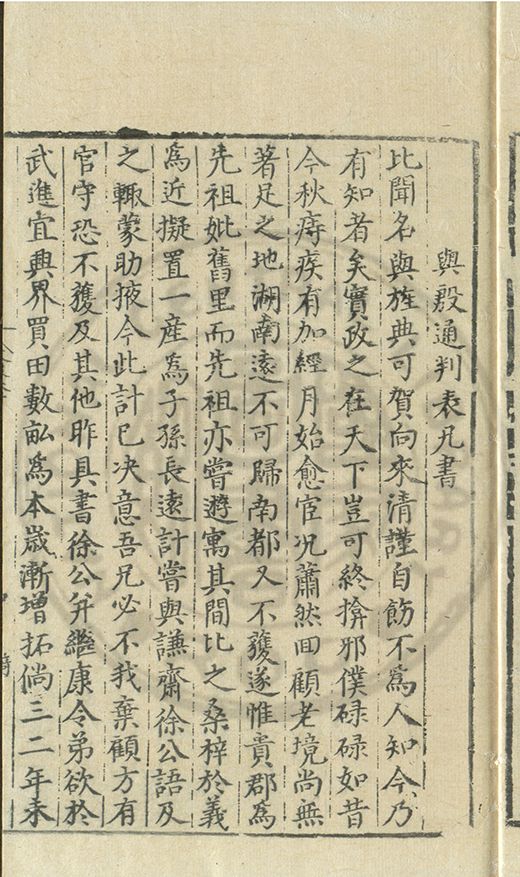 與殷通判表兄書
比聞名與旌典可賀向來清謹自飭不爲人知今乃
有知者矣實政之在天下豈可終揜邪僕碌碌如昔
今秋痔疾有加經月始愈宦况蕭然回顧老境尚無
著足之地湖南逺不可歸南都又不獲遂惟貴郡爲
先祖妣舊里而先祖亦嘗遊寓其間比之桑梓於義
爲近擬置一産爲子孫長逺計嘗與謙齋徐公語及
之輙蒙助掖今此計已决意吾兄必不我棄顧方有
官守恐不獲及其他昨具書徐公并繼康令弟欲於
武進宜興界買田數畝爲本歲漸增拓倘三二年未